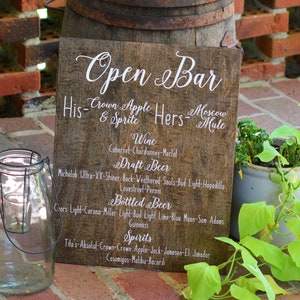 Open Bar
His- Crown Apple & Sprite Hers- Moscow Mule
Wine
Cabernet-Chardonnay-Merlot
Draft Beer
Michelob Ultra-XX-Shiner Bock-Weathered Souls-Bud Light-Hopadillo
Lovestreet-Peroni
Bottled Beer
Coors Light-Corona-Miller Light-Bud Light Lime-Blue Moon-Sam Adams
Guinness
Spirits
Tito's-Absolut-Crown-Crown Apple-Jack-Jameson-El Jimador
Casamigos-Malibu-Bacardi